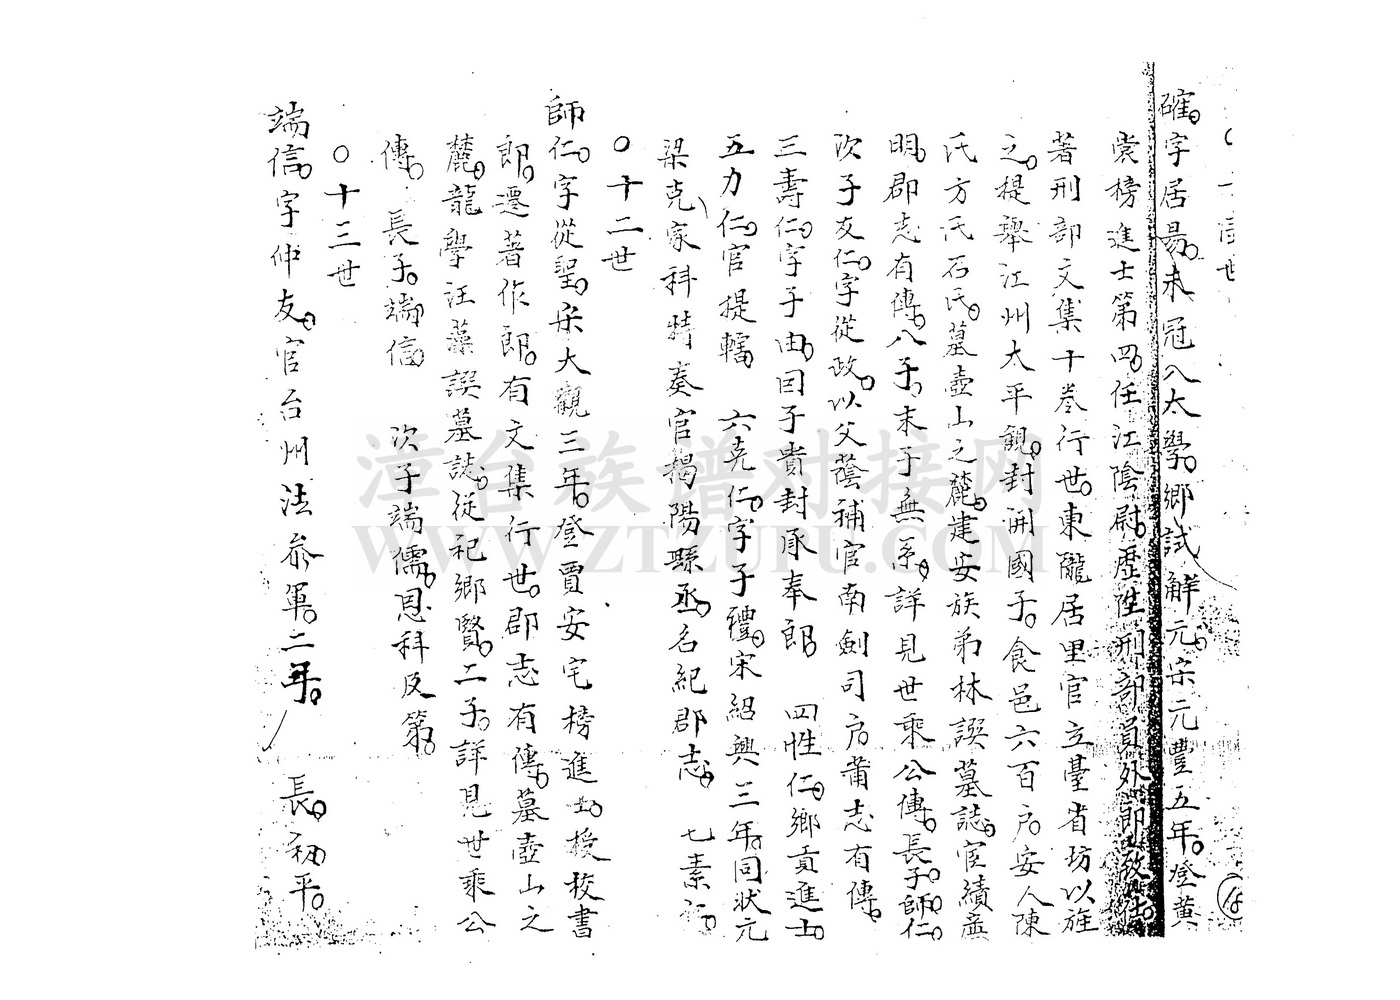 ○十一世
確。字居易。未冠入太學。鄉試解元。宋元豐五年。登黄
裳榜進士第四。任江陰尉。歷陞刑部員外郎。致仕。
著刑部文集十卷行世。東隴居里官立臺省坊以旌
之。提舉江州太平觀。封開國子。食邑六百户。安人陳
氏方氏石氏。墓壺山之麓。建安族弟林譔墓誌。宦績廣
明。郡志有傳。八子。末子無系。詳見世乘公傳。長子師仁。
次子友仁。字從政。以父蔭補官南劍司户。莆志有傳。
三壽仁。字子由。因子貴封承奉郎。 四性仁。鄉貢進士。
五力仁。官提轄。 六克仁。字子禮。宋紹興三年。同狀元
梁克家科特奏官揭陽縣丞。名紀郡志。 七素
○十二世
師仁。字從聖。宋大觀三年。登賈安宅榜進士。授校書
郎。遷著作郎。有文集行世。郡志有傳。墓壺山之
麓。龍學汪藻譔墓誌。從祀鄉賢。二子。詳見世乘公
傳。 長子。端信。 次子端儒。恩科及第。
○十三世
端信。字仲友。官台州法參軍。二年。 長。初平。
漳台族谱对接网
WWW.ZTZUPU.COM